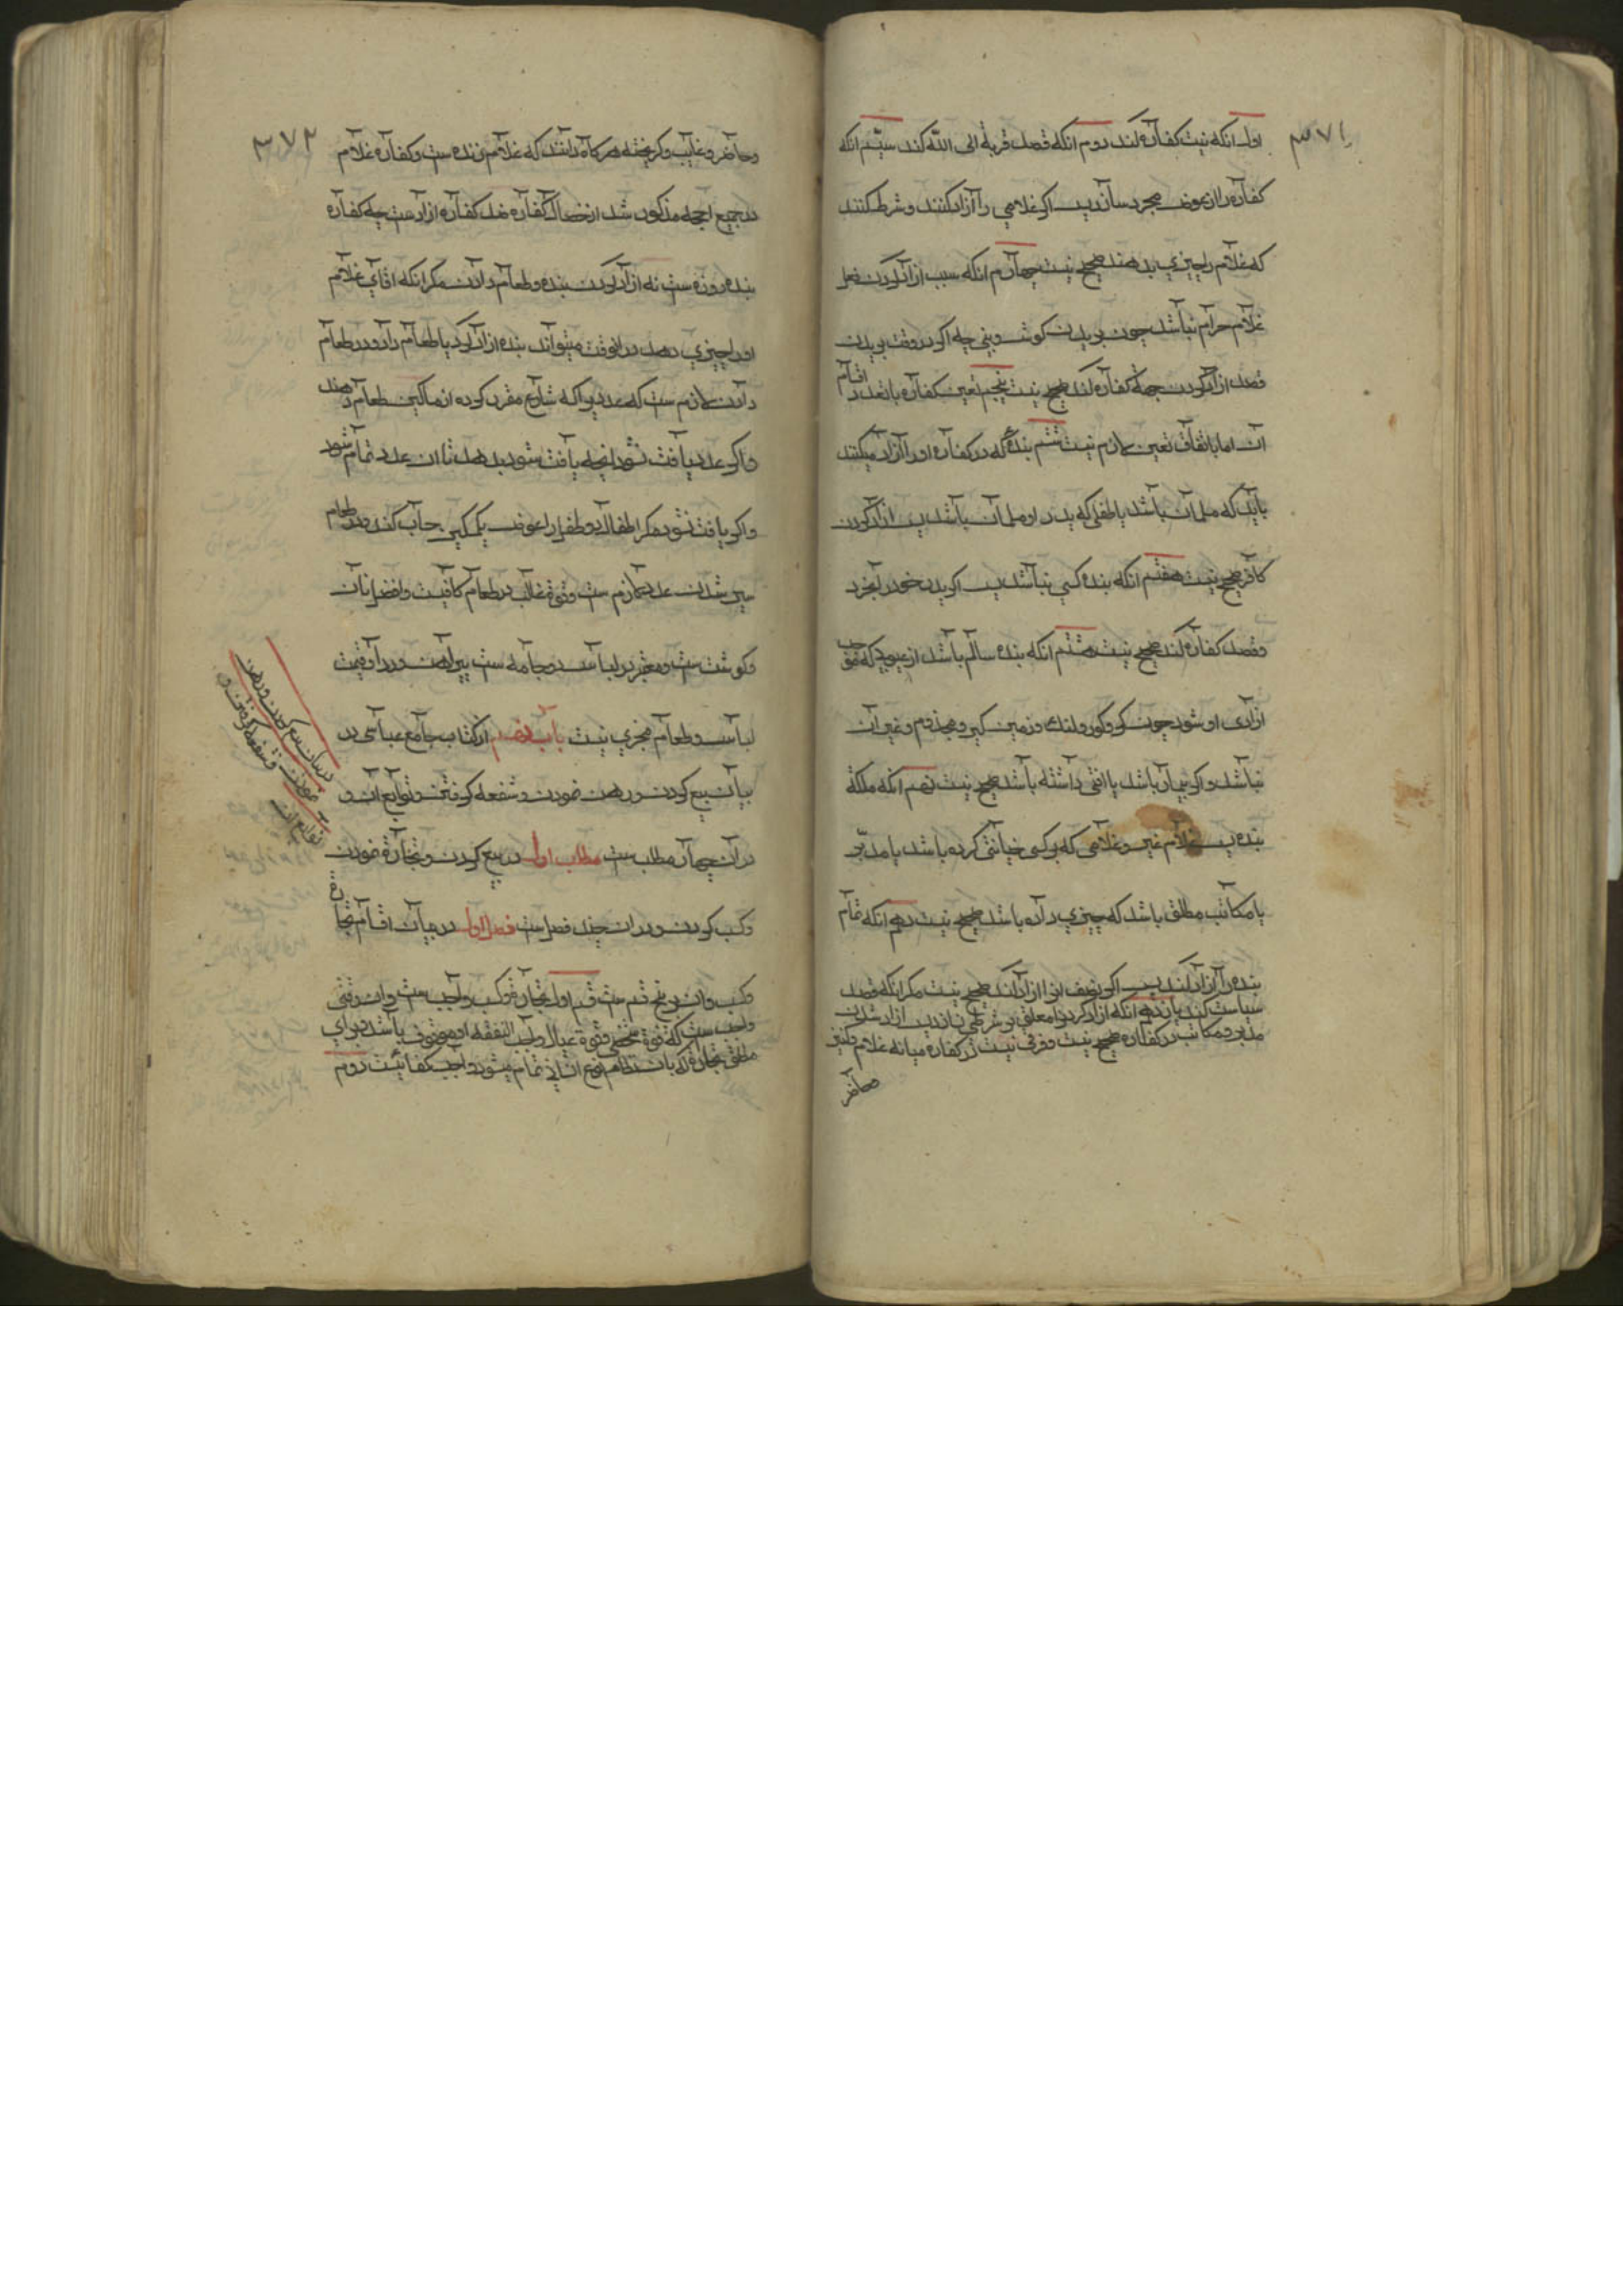 ۳۷۱
اول انکه نیت کفاره کند دوم انکه قصد قربة الی الله کند سیّم انکه
کفاره را از عوض مجرد سازد پس اکر غلامی را آزاد کنند و شرط کنند
که غلام چیزی بدهد صحیح نیست چهارم انکه سبب ازاد کردن فعل
غلام حرام نباشد چون بریدن کوش و بینی چه اکر در وقت بریدن
قصد ازاد کردن جهة کفاره کند صحیح نیست پنجم تعین کفاره با تعدد اقسام
آن اما با اتفاق تعین لازم نیست ششم بندهٔ که در کفاره او را آزاد میکنند
باید که مسلمان باشد یا طفلی که پدر او مسلمان باشد پس ازاد کردن
کافر صحیح نیست هفتم انکه بنده کسی نباشد پس اکر پدر خود را بخرد
و قصد کفاره کند صحیح نیست هشتم انکه بنده سالم باشد از عیوبی که موجب
ازادی او شود چون کر و کور و لنك و زمین کیر و مجذوم و غیر آن
نباشد و اکر بیمار باشد یا افتی داشته باشد صحیح نیست نهم انکه ملکه
بنده پس غلام غیر و غلامی که بر کسی خیانتی کرده باشد یا مدبّر
یا مکاتب مطلق باشد که چیزی داده باشد صحیح نیست دهم انکه تمام
بنده را آزاد کند پس اکر نصف او را ازاد کند صحیح نیست مکر انکه قصد
سیاست کند یازدهم انکه ازاد کردن را معلق بر شرطی نسازد پس ازاد شدن
مدبر و مکاتب در کفاره صحیح نیست و فرقی نیست در کفاره میانه غلام و کنیز
و حاضر
۳۷۲
و حاضر و غایب و کریخته هرکاه دانند که غلام زنده ست و کفاره غلام
در جمیع انچه مذکور شد از خصال کفاره ضد کفاره ازاد ست چه کفاره
بنده روزه ست نه ازاد کردن بنده و طعام دادن مکر انکه اقای غلام
او را چیزی دهد در انوقت میتواند بنده ازاد کرد یا طعام داد و در طعام
دادن لازم ست که عددی را که شارع مقرر کرده از مساکین طعام دهند
و اکر عدد یافت نشود انچه یافت شود بدهد تا ان عدد تمام شود
و اکر یافت نشود مکر اطفال دو طفل را عوض یکمسکین حساب کند و در طعام
سیر شدن عدد لازم ست و قوة غالب در طعام کافیست و افضل نان
و کوشت ست و معتبر در لباس دو جامه ست پیراهن و ردا و قیمت
لباس و طعام مجزی نیست باب دهم از کتاب جامع عباسی در
بیان بیع کردن و رهن نمودن و شفعه کرفتن و توابع ان و
در آن چهار مطلب ست مطلب اول در بیع کردن و تجارة نمودن
و کسب کردن و در ان چند فصل ست فصل اول در بیان اقسام تجارة
و کسب و ان بر پنج قسم ست قسم اول تجارة و کسب واجب ست و ان وقتی
واجب ست که قوة شخصی و قوة عیال واجب النفقه او موقوف باشد بر ان
مطلق تجارة که بان نظام نوع انسانی تمام میشود واجب کفائیست دوم
در بیان بیع کردن و رهن
نمودن و شفعه کرفتن و
توابع ان